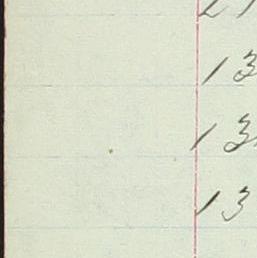 13
13
13